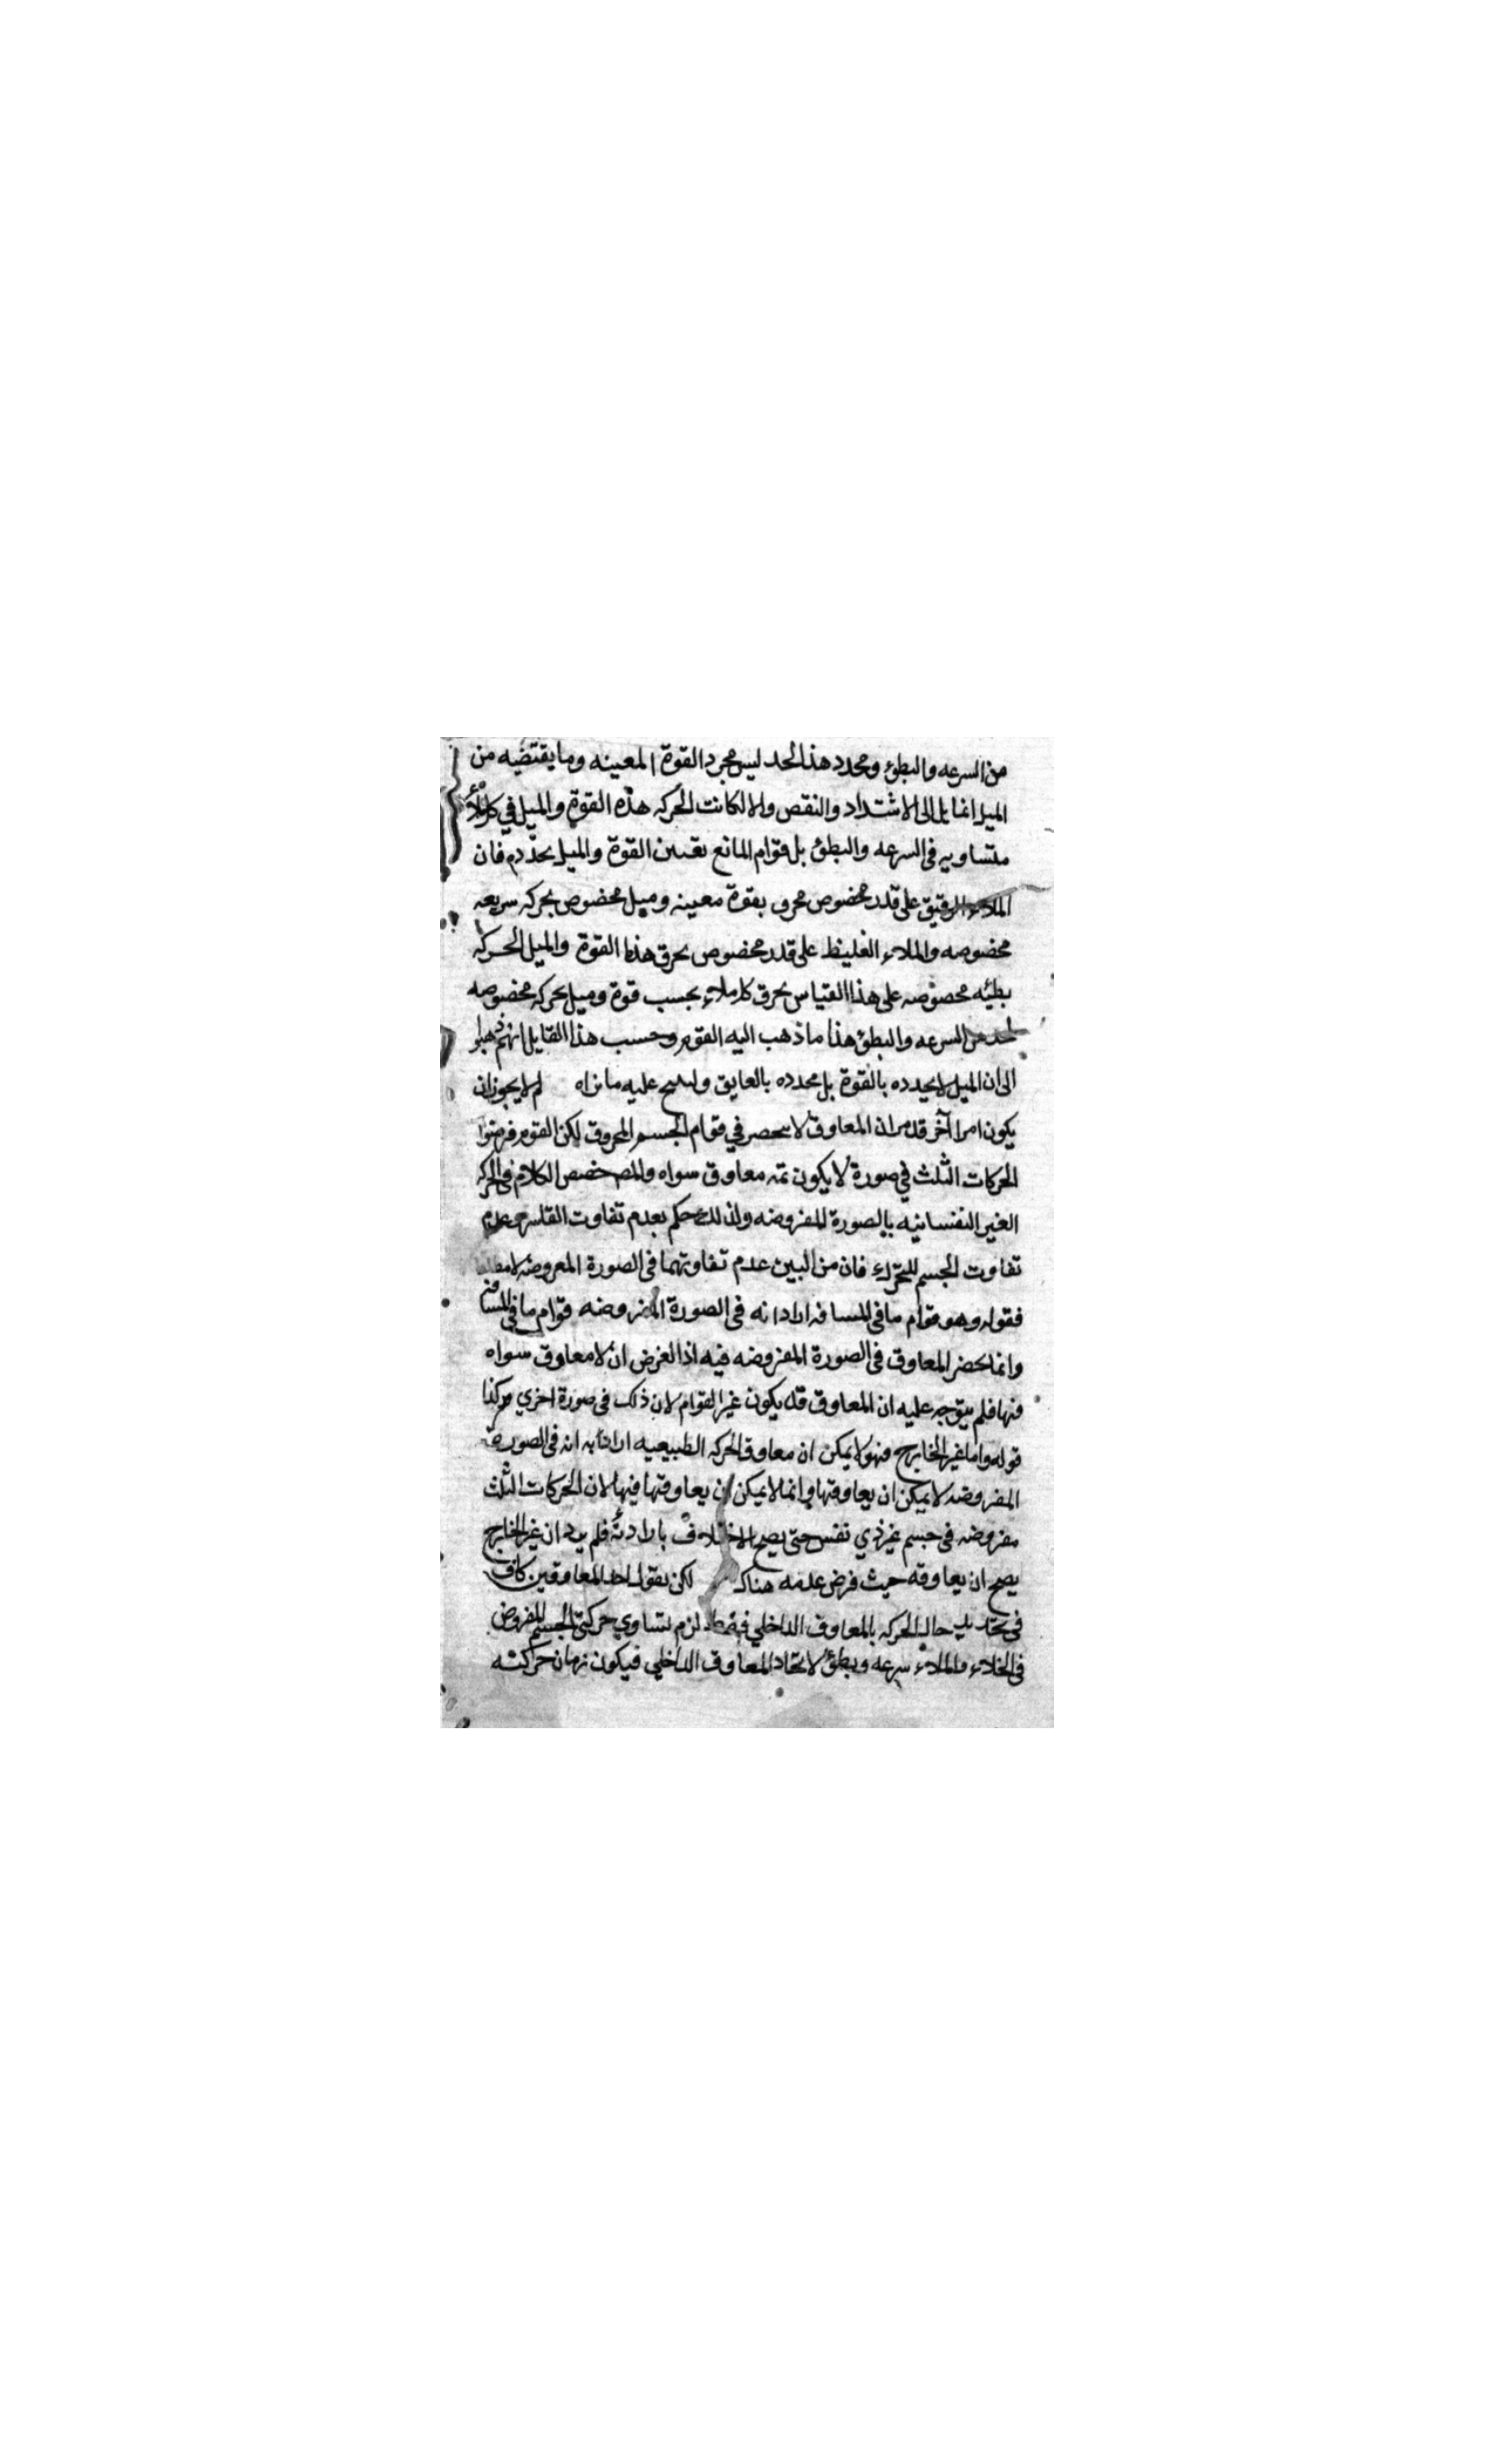 من السرعه والبطؤ ومحدد هذا الحد ليس مجرد القوة المعينه وما يقتضيه من
الميل انما بل الى الاشتداد والنقص والا لكانت الحركه هذه القوة والميل في كل ملأ
متساويه في السرعه والبطؤ بل قوام المانع بعين القوة والميل يحدده فان
الملاء الرقيق على قدر مخصوص محرق بقوة معينه وميل مخصوص بحركه سريعه
مخصوصه والملاء الغليظ على قدر مخصوص يخرق هذا القوة والميل الحركه
بطيئه مخصوصه على هذا القياس يخرق كل ملاء بحسب قوة وميل بحركه مخصوصه
لحد من السرعه والبطؤ هذا ما ذهب اليه القوم وحسب هذا القايل انهم ذهبوا
الى ان الميل لا يحدده بالقوة بل محدده بالعايق عليه ما نراه لم لا يجوز ان
يكون امرا آخر قد مر ان المعاوق لا ينحصر في قوام الجسم المخروق لكن القوم فرضوا
الحركات الثلث في صورة لا يكون ثمه معاوق سواه والمص خصص الكلام في الحركه
الغير النفسانيه بالصورة المفروضه ولذلك حكم بعدم تفاوت القاسر وعدم
تفاوت الجسم المتحرك فان من البين عدم تفاوتهما في الصورة المعروضه لا مطلقا
فقوله وهو قوام ما في المسافه اراد انه في الصورة المفروضه قوام ما في المسافه
وانما يحضر المعاوق في الصورة المفروضه فيه اذ الغرض ان لا معاوق سواه
فيها فلم يتوجه عليه ان المعاوق قد يكون غير القوام لان ذلك في صورة اخرى وكذا
قوله واما غير الخارج فهو لا يمكن ان معاوق الحركه الطبيعيه اراد به انه في الصورة
المفروضه لا يمكن ان يعاوقها وانما لا يمكن ان يعاوقها فيها لان الحركات الثلث
مفروضه في جسم غير ذي نفس حتى يصح الاختلاف بارادته فلم يرد ان غير الخارج
يصح ان يعاوقه حيث فرض عدمه هناك لكن نقول احد المعاوقين كاف
في تحديد حال الحركه بالمعاوق الداخلي فقط لزم تساوي حركتي الجسم المفروض
في الخلاء والملاء سرعه وبطؤ لاتحاد المعاوق الداخلي فيكون زمان حركته